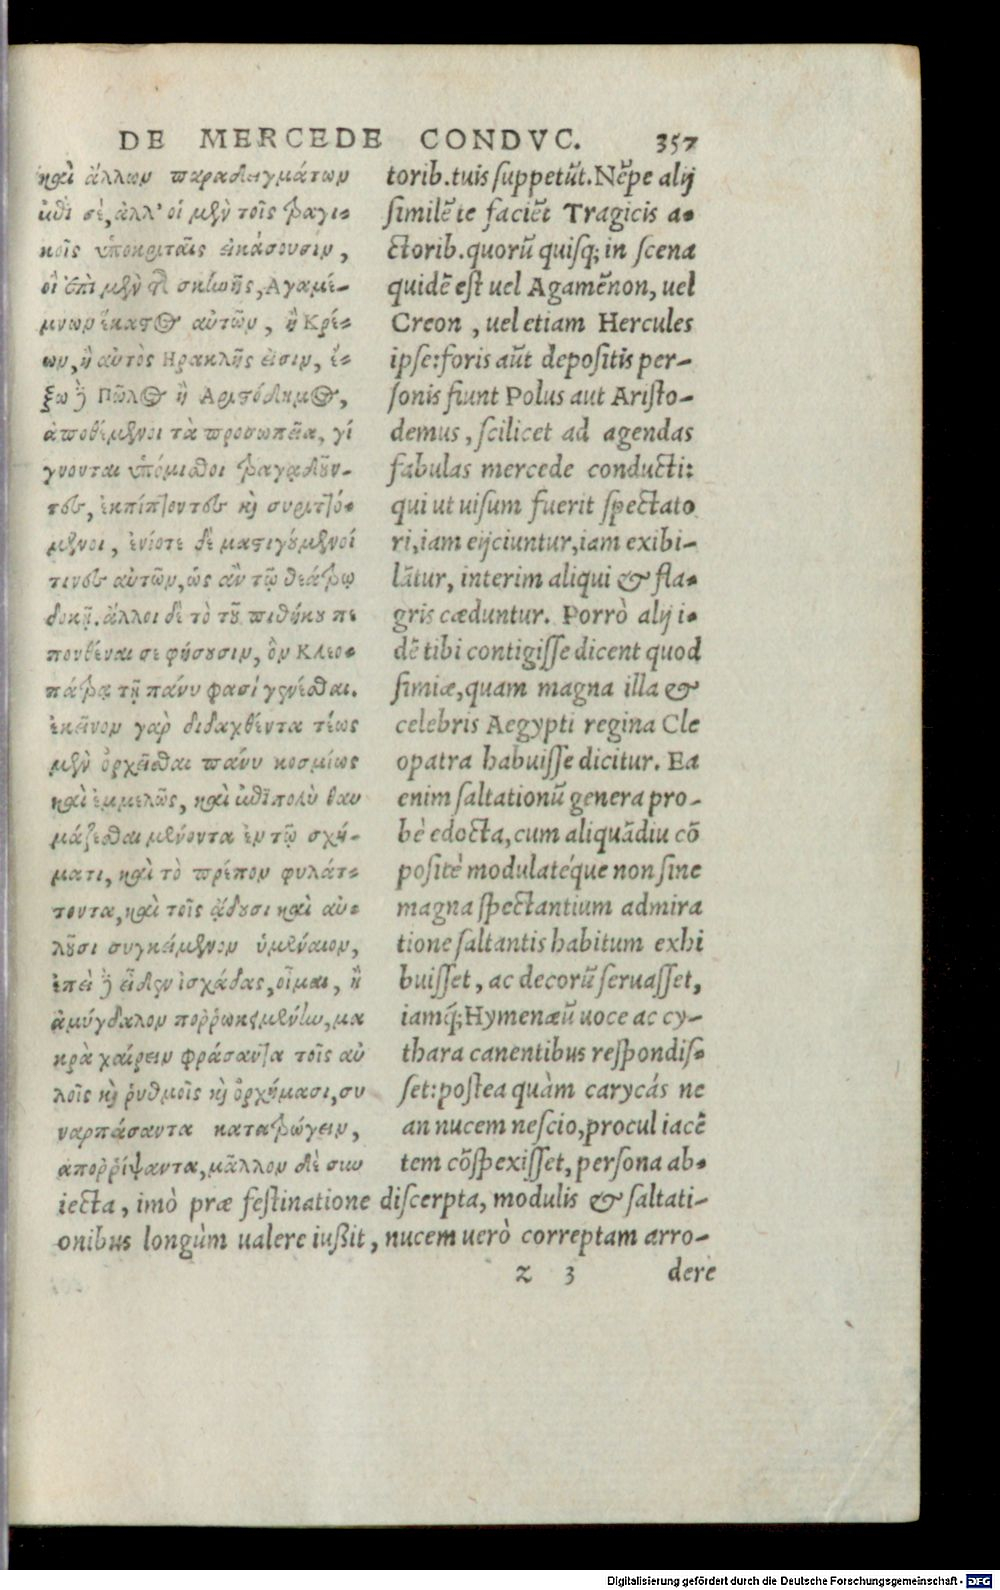 DE MERCEDE CONDVC. 357
καὶ ἄλλων παραδειγμάτων
ἐπὶ σέ, ἀλλ' οἱ μὲν τοῖς τραγι-
κοῖς ὑποκριταῖς εἰκάσουσιν,
οἳ ἐπὶ μὲν τῆς σκηνῆς, Αγαμέ-
μνων ἕκαστος αὐτῶν, ἢ Κρέ-
ων, ἢ αὐτὸς Ηρακλῆς εἰσιν, ἔ-
ξω δὲ Πῶλος ἢ Αριστόδημος,
ἀποθέμενοι τὰ προσωπεῖα, γί
γνονται ὑπόμισθοι τραγῳδοῦν-
τες, ἐκπίπτοντες καὶ συριττό-
μενοι, ἐνίοτε δὲ μαστιγούμενοί
τινες αὐτῶν, ὡς ἂν τῷ θεάτρῳ
δοκῇ. ἄλλοι δὲ τὸ τοῦ πιθήκου πε
πονθέναι σε φήσουσιν, ὃν Κλεο-
πάτρᾳ τῇ πάνυ φασὶ γενέσθαι.
ἐκεῖνον γὰρ διδαχθέντα τέως
μὲν ὀρχεῖσθαι πάνυ κοσμίως
καὶ ἐμμελῶς, καὶ ἐπὶ πολὺ θαυ
μάζεσθαι μένοντα ἐν τῷ σχή-
ματι, καὶ τὸ πρέπον φυλάτ-
τοντα, καὶ τοῖς ᾄδουσι καὶ αὐ-
λοῦσι συγκάμενον ὑμέναιον,
ἐπεὶ δὲ εἶδεν ἰσχάδας, οἶμαι, ἢ
ἀμύγδαλον πόρρω κειμένην, μα
κρὰ χαίρειν φράσαντα τοῖς αὐ
λοῖς καὶ ῥυθμοῖς καὶ ὀρχήμασι, συ
ναρπάσαντα κατατρώγειν,
ἀπορρίψαντα, μᾶλλον δὲ συν
torib. tuis suppetũt. Nẽpe alij
similẽ te faciẽt Tragicis a-
ctorib. quorũ quisq; in scena
quidẽ est uel Agamẽnon, uel
Creon, uel etiam Hercules
ipse: foris aũt depositis per-
sonis fiunt Polus aut Aristo-
demus, scilicet ad agendas
fabulas mercede conducti:
qui ut uisum fuerit spectato
ri, iam eijciuntur, iam exibi-
lãtur, interim aliqui & fla-
gris cæduntur. Porrò alij i-
dẽ tibi contigisse dicent quod
simiæ, quam magna illa &
celebris Aegypti regina Cle
opatra habuisse dicitur. Ea
enim saltationũ genera pro-
bè edocta, cum aliquãdiu cõ
positè modulatéque non sine
magna spectantium admira
tione saltantis habitum exhi
buisset, ac decorũ seruasset,
iamq̃; Hymenæũ uoce ac cy-
thara canentibus respondis-
set: postea quàm carycás ne
an nucem nescio, procul iacẽ
tem cõspexisset, persona ab-
iecta, imò præ festinatione discerpta, modulis & saltati-
onibus longùm ualere iußit, nucem uerò correptam arro-
z 3 dere
Digitalisierung gefördert durch die Deutsche Forschungsgemeinschaft - DFG